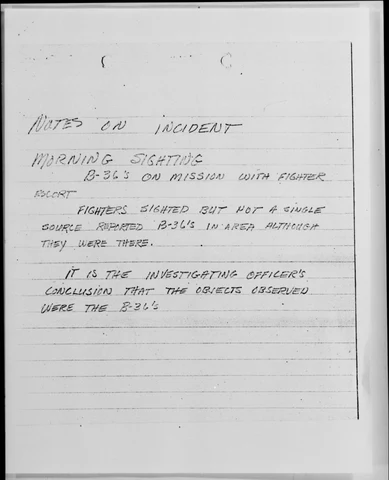 NOTES ON INCIDENT
MORNING SIGHTING
B-36'S ON MISSION WITH FIGHTER
ESCORT
FIGHTERS SIGHTED BUT NOT A SINGLE
SOURCE REPORTED B-36'S IN AREA ALTHOUGH
THEY WERE THERE.
IT IS THE INVESTIGATING OFFICER'S
CONCLUSION THAT THE OBJECTS OBSERVED
WERE THE B-36'S